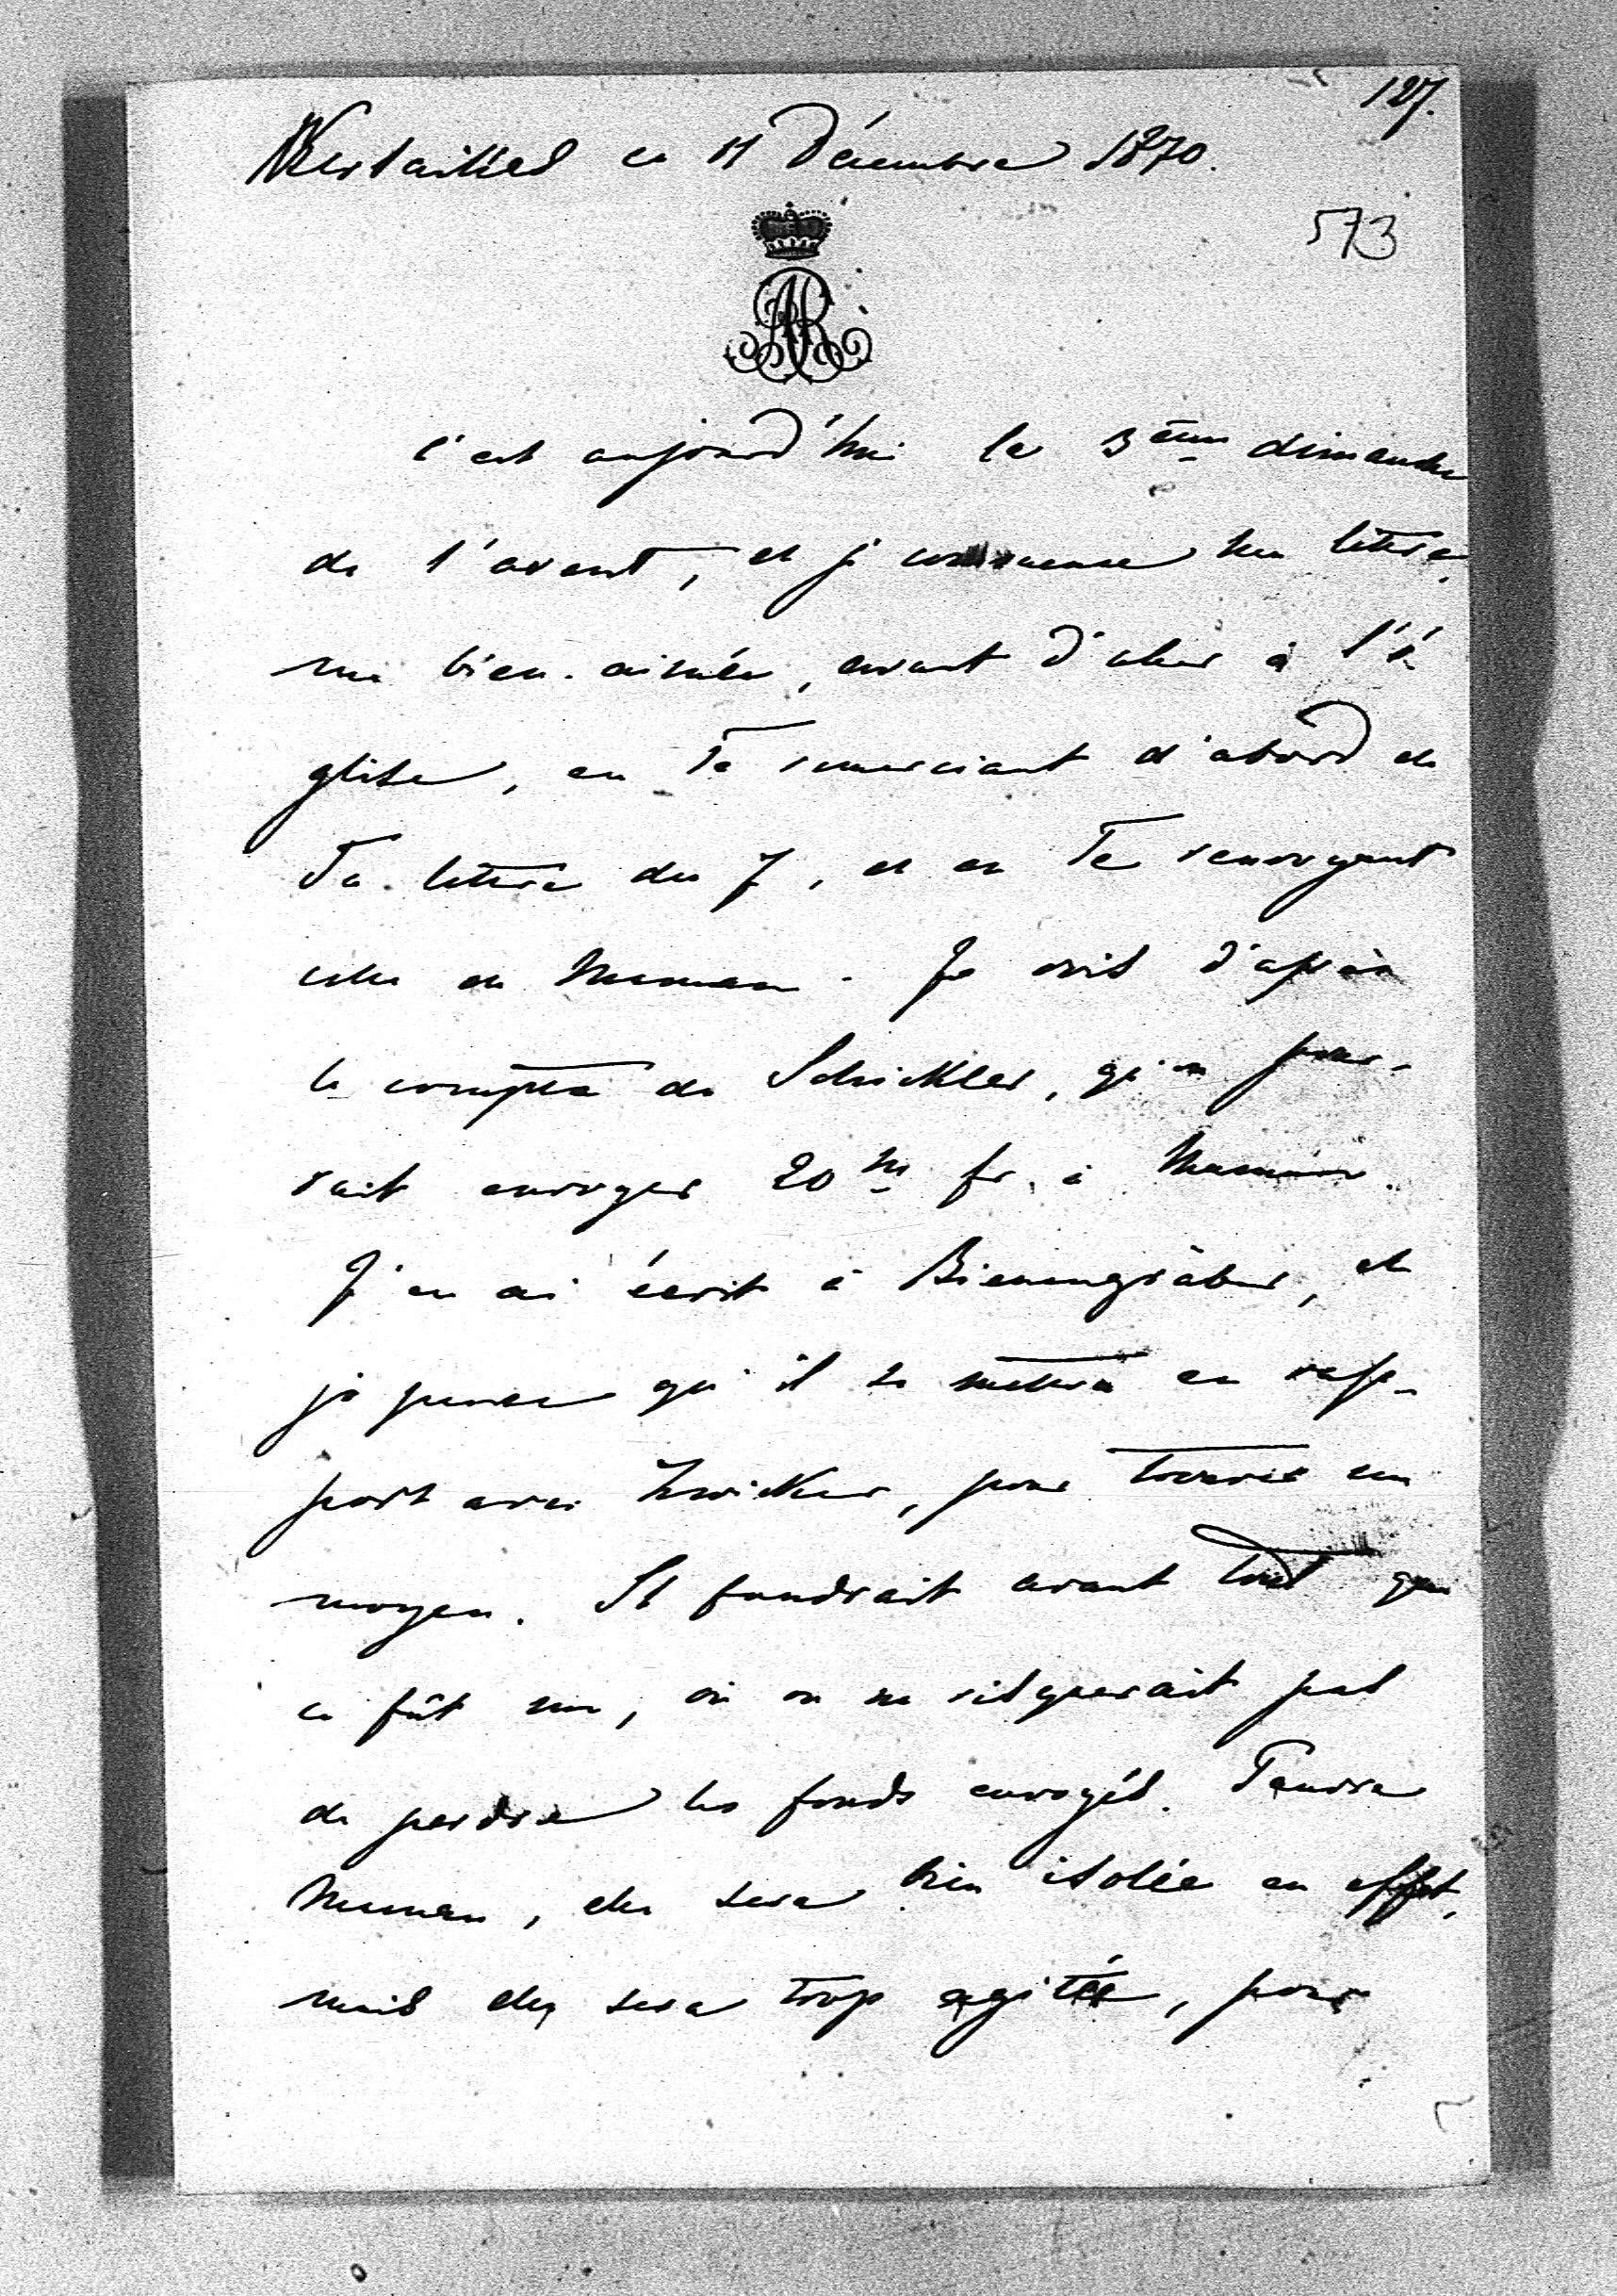 127.
Versailles ce 11 Décembre 1870.
573
AR
C'est aujourd'hui le 3ème dimanche
de l'avent, et je commence ma lettre,
ma bien-aimée, avant d'aller à l'é
glise, en Te remerciant d'abord de
Ta lettre du 7, et en Te renvoyant
celle de Maman. Je vois d'après
le compte de Schickler, qu'on pour-
rait envoyer 20 m fr. à Maman.
J'en ai écrit à Biennengräber, et
je pense qu'il se mettra en rap-
port avec Zwicker, pour trouver un
moyen. Il faudrait avant tout que
ce fût un, où on ne risquerait pas
de perdre les fonds envoyés. Pauvre
Maman, elle sera bien isolée en effet,
mais elle sera trop agitée, pour